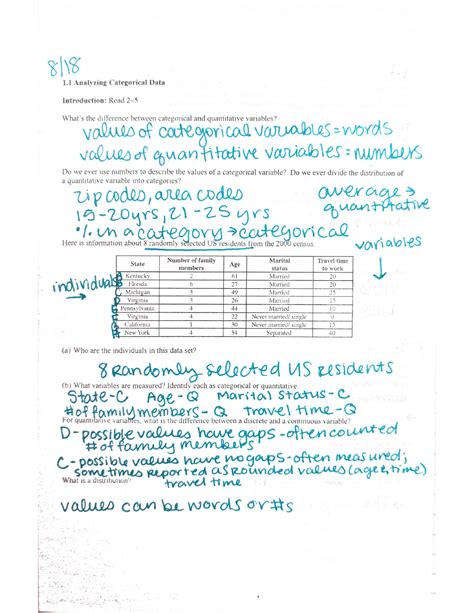 8/18
1.1 Analyzing Categorical Data
Introduction: Read 2–5
What's the difference between categorical and quantitative variables?
values of categorical variables = words
values of quantitative variables = numbers
Do we ever use numbers to describe the values of a categorical variable? Do we ever divide the distribution of
a quantitative variable into categories?
zip codes, area codes
average → quantitative
19-20yrs, 21-25 yrs
% in a category → categorical
variables
Here is information about 8 randomly selected US residents from the 2000 census.
individuals
State Number of family members Age Marital status Travel time to work
Kentucky 2 61 Married 20
Florida 6 27 Married 20
Michigan 3 49 Married 25
Virginia 3 26 Married 15
Pennsylvania 4 44 Married 10
Virginia 4 22 Never married/ single 0
California 1 30 Never married/ single 15
New York 4 34 Separated 40
(a) Who are the individuals in this data set?
8 Randomly selected US residents
(b) What variables are measured? Identify each as categorical or quantitative.
State-C Age-Q Marital Status-C
# of family members - Q travel time-Q
For quantitative variables, what is the difference between a discrete and a continuous variable?
D-possible values have gaps - often counted
# of family members
C-possible values have no gaps - often measured;
sometimes reported as rounded values (age, time)
travel time
What is a distribution?
values can be words or #s